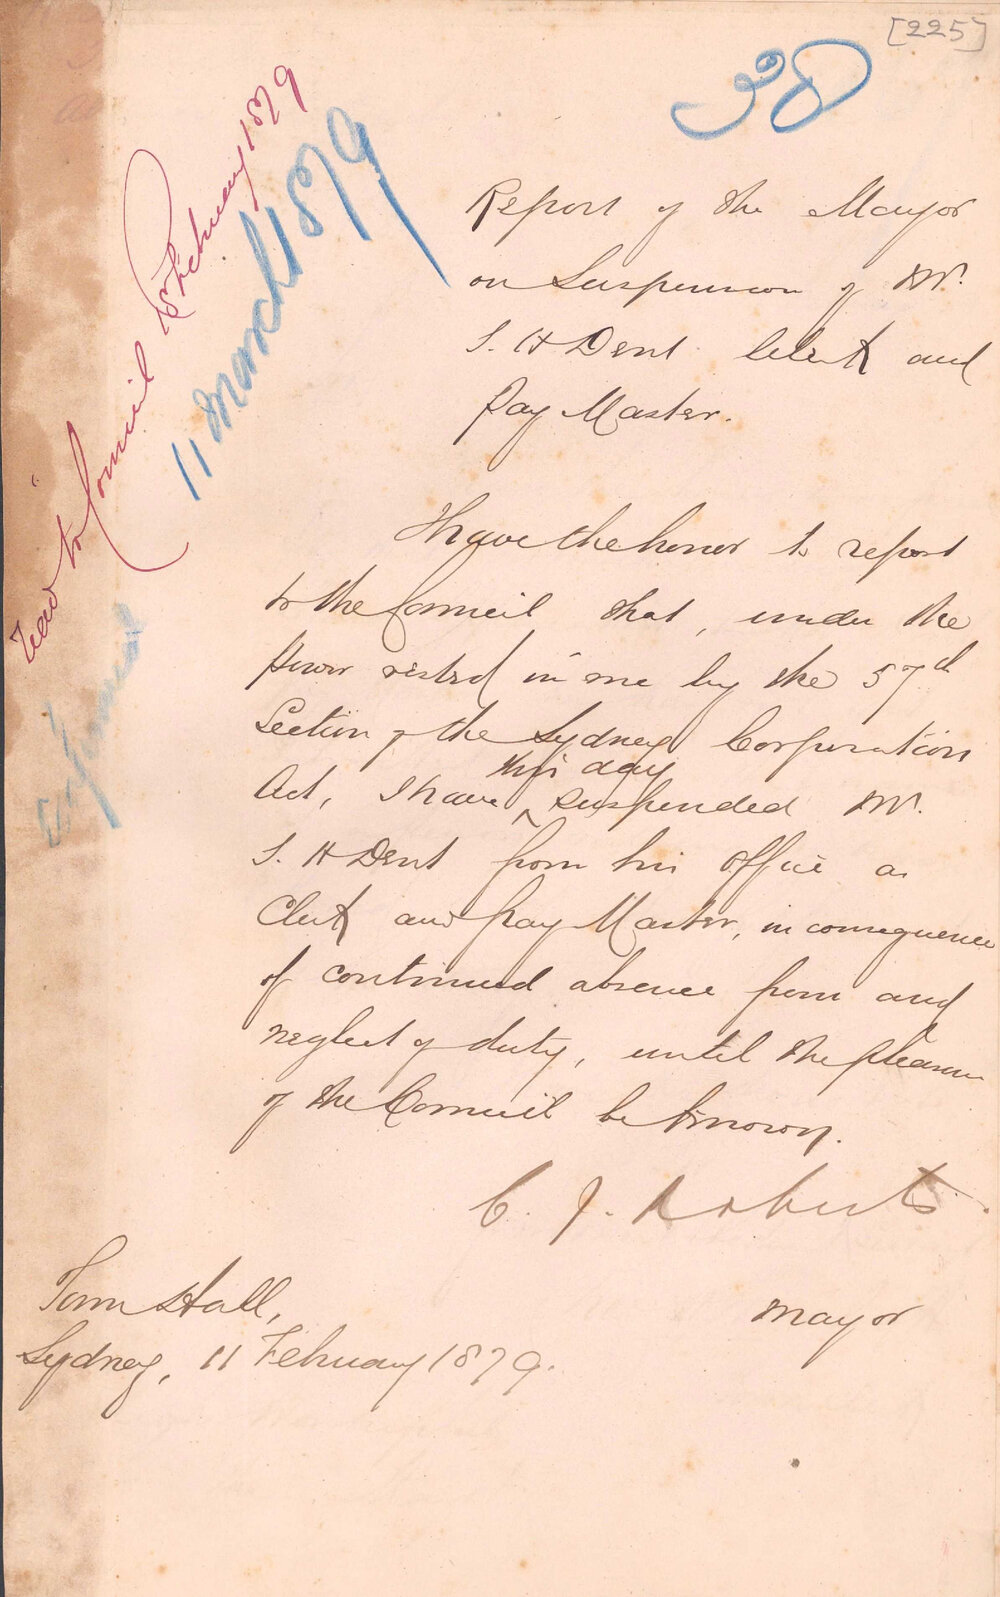 [225]
30
Read to Council 18 February 1879
11 March 1879
Report of the Mayor
on Suspension of Mr.
S. H Dent Clerk and
Pay Master.
I have the honor to report
to the Council that, under the
power vested in me by the 57th
Section of the Sydney Corporation
this day
Act, I have ^ suspended Mr.
S. H Dent from his office as
Clerk and Pay Master, in consequence
of continued absence from and
neglect of duty, until the pleasure
of the Council be known.
C. J. Roberts.
Mayor
Town Hall,
Sydney, 11 February 1879.